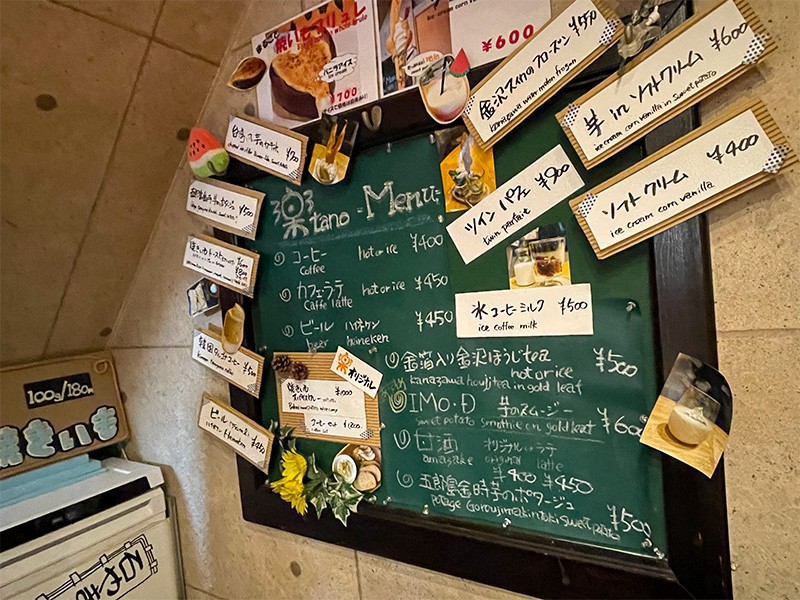 焼いもブリュレ
バニラアイス
¥700
¥600
金沢スイカのフローズン ¥550
kanazawa water melon frozen
芋 in ソフトクリーム ¥600
ice cream corn vanilla in sweet potato
ソフトクリーム ¥400
ice cream corn vanilla
ツイン パフェ ¥900
twin parfait
氷コーヒーミルク ¥500
ice coffee milk
楽 tano - Menu -
コーヒー hot or ice ¥400
Coffee
カフェラテ hot or ice ¥450
Caffe latte
ビール ハイネケン ¥450
beer heineken
楽オリジナル
金箔入り金沢ほうじtea ¥500
hot or ice
kanazawa houji tea in gold leaf
IMO・Đ 芋のスムージー ¥600
sweet potato Smothie on gold leaf
甘酒 オリジナル ラテ
amasake original latte
¥400 ¥450
五郎島金時芋のポタージュ ¥500
potage Goroujimakintoki sweet potato
¥500
韓国
コーヒー ¥550
ビール
¥450
Heineken
100g/180円
焼きいも